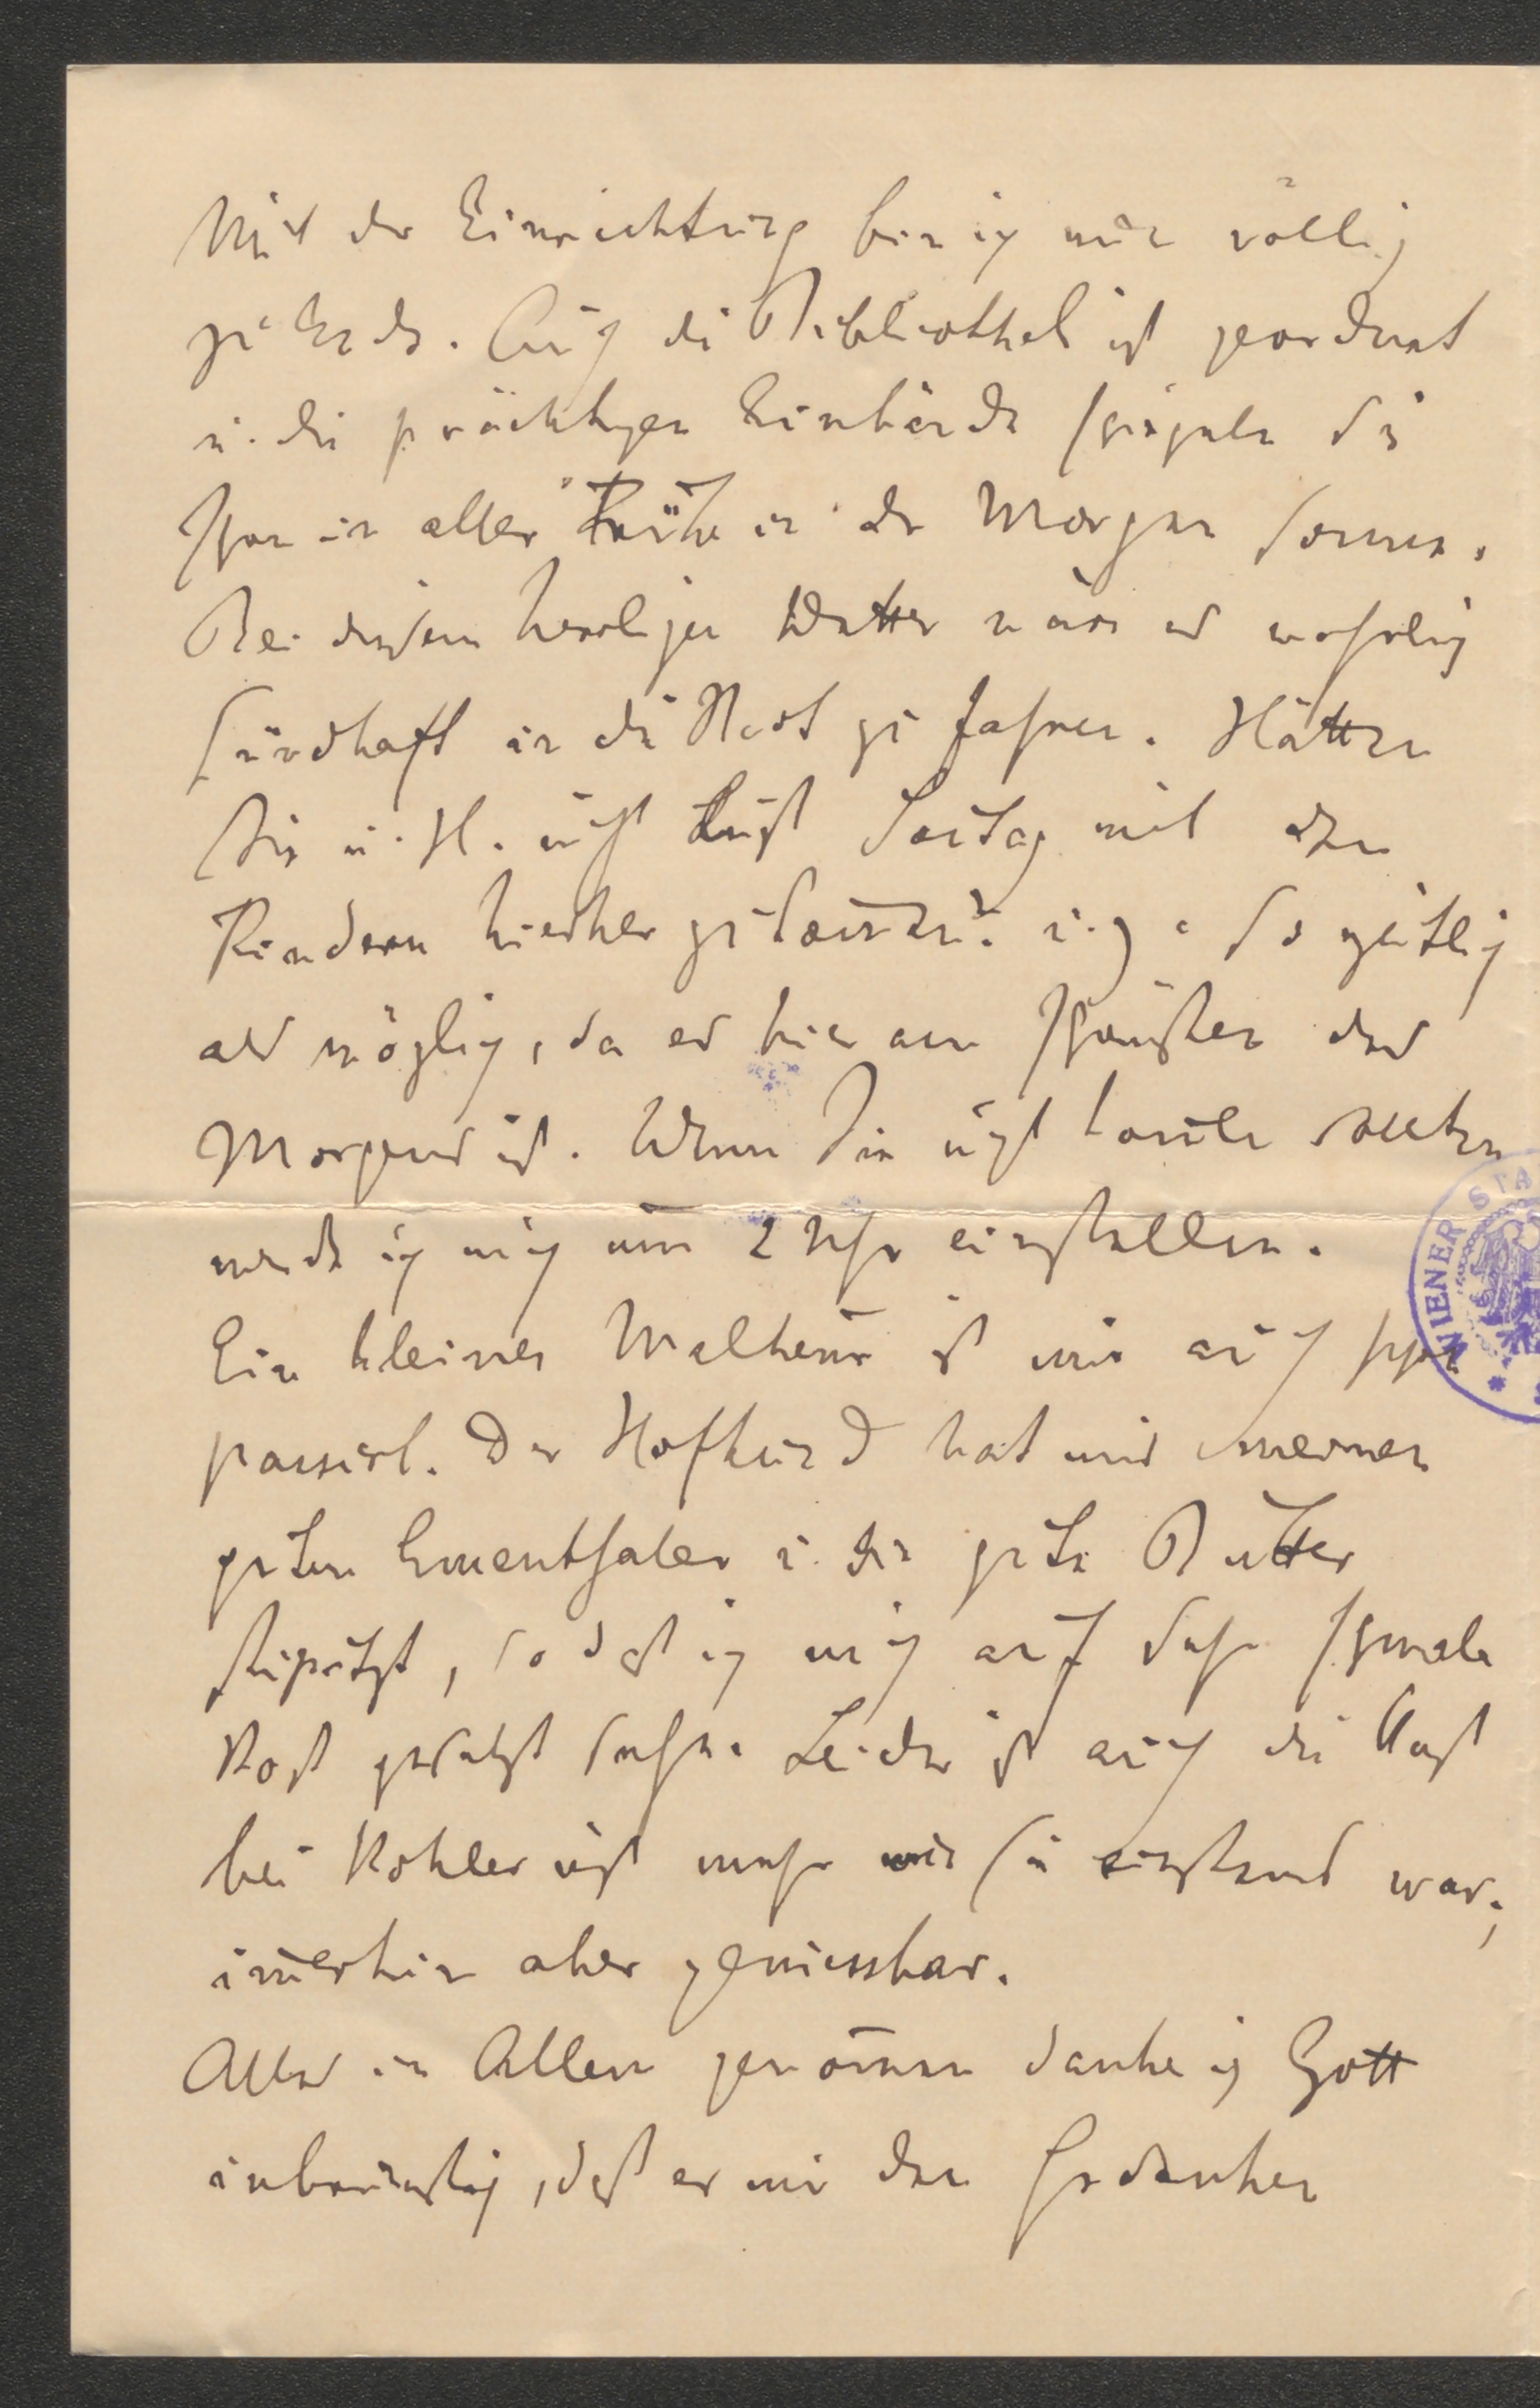 Mit der Einrichtung bin ich nun völlig
zu Ende. Auch die Bibliothek ist geordnet
u. die prächtigen Einbände spiegeln sich
schon in aller Frühe in der Morgen Sonne.
Bei diesem herrlichen Wetter wäre es wahrlich
sündhaft in die Stadt zu fahren. Hätten
Sie u. H. nicht Lust Sontag mit den
Kindern hierher zu kom̄en? u. z. so zeitlich
als möglich, da es hier am Schönsten des
Morgens ist. Wenn Sie nicht kom̄en sollten
werde ich mich um 2 Uhr einstellen.
Ein kleines Malheur ist mir auch schon
passirt. Der Hofhund hat mir meinen
guten Ementhaler u. die gute Butter
stipitzt, so daß ich mich auf sehr schmale
Kost gesetzt sehe. Leider ist auch die Kost
bei Kohler nicht mehr wie sie einstens war,
im̄erhin aber geniessbar.
Alles in Allem genom̄en danke ich Gott
inbrünstig, daß er mir den Gedanken
WIENER STA